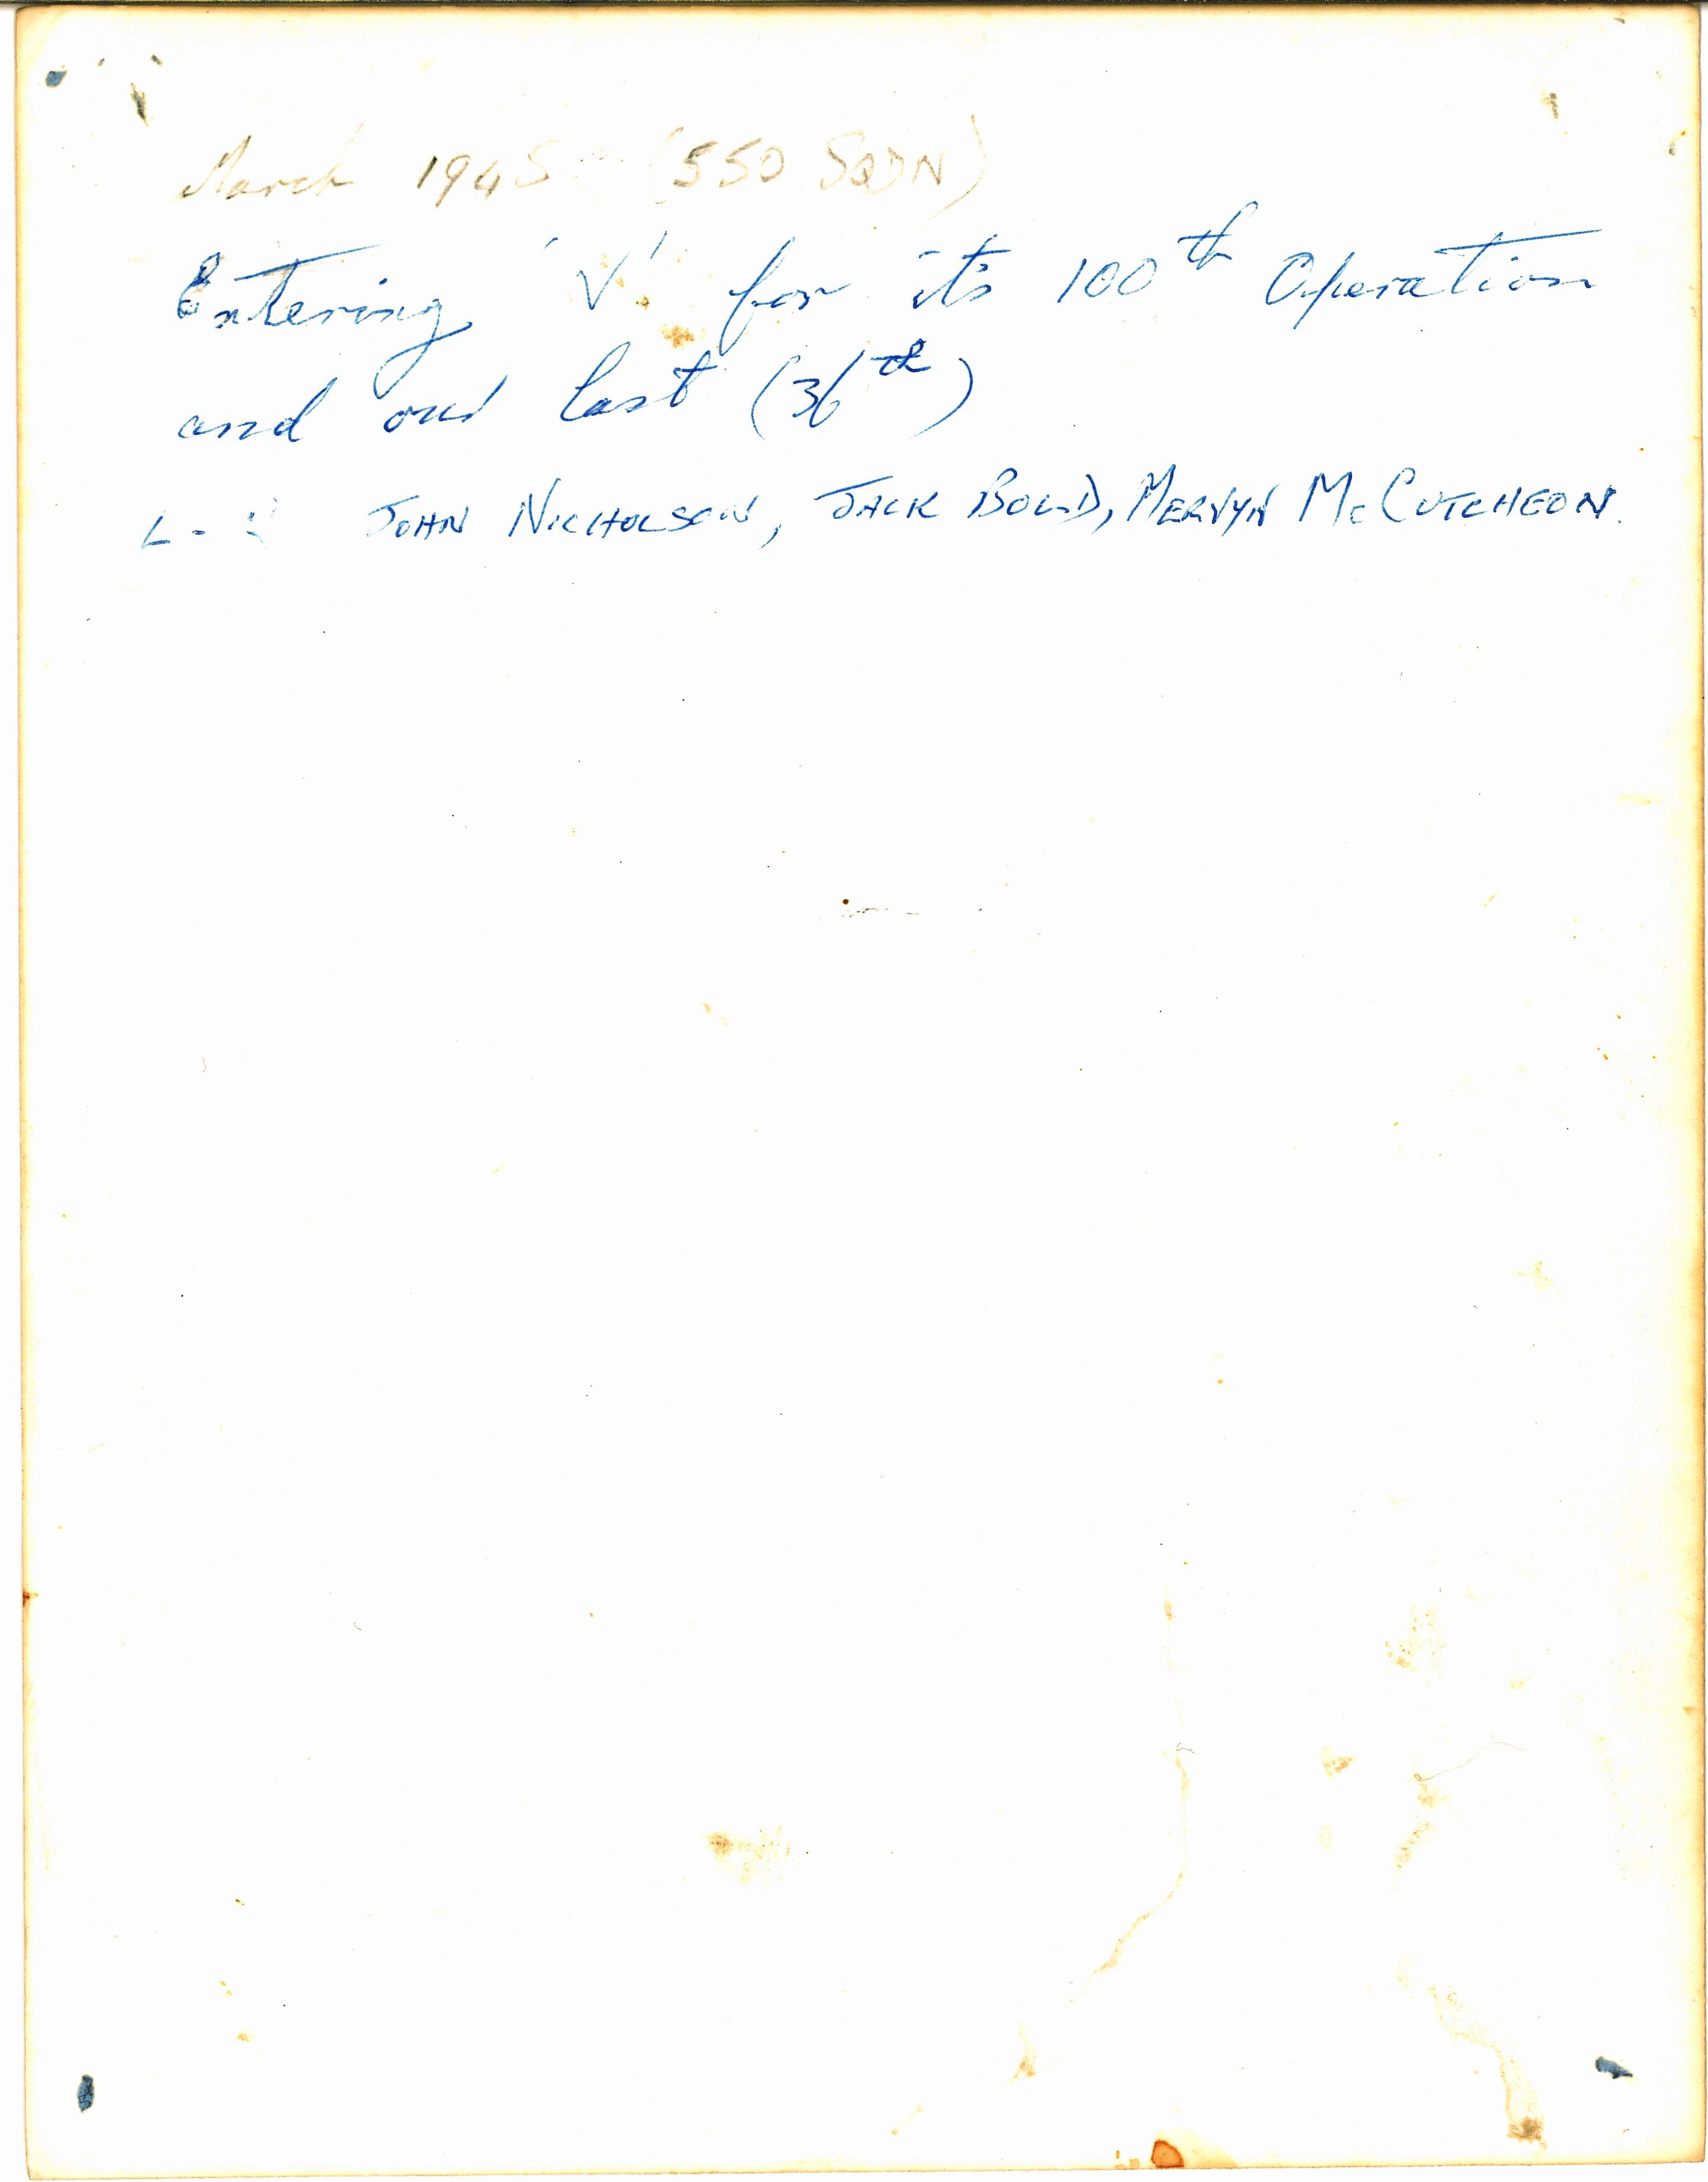 March 1945 (550 SQDN)
Entering 'V' for it's 100th Operation
and our last (36th)
L - JOHN NICHOLSON, JACK BOLD, MERVYN McCUTCHEON.